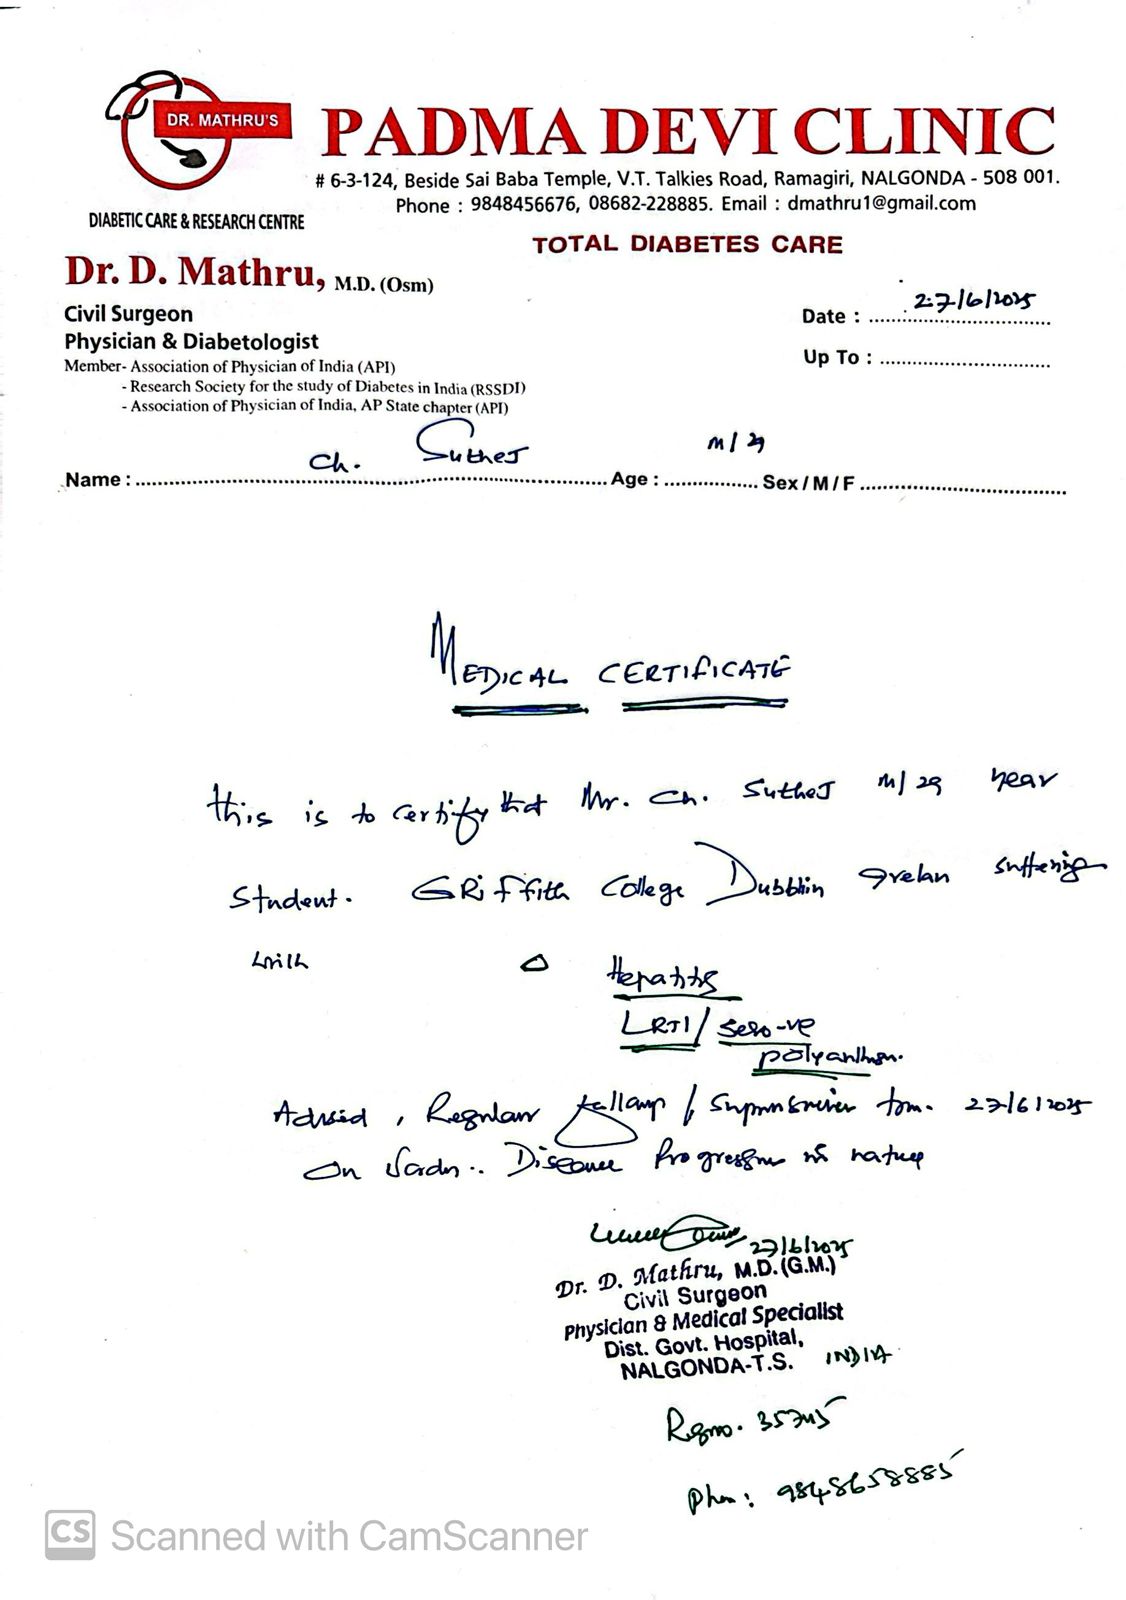 DR. MATHRU'S
PADMA DEVI CLINIC
# 6-3-124, Beside Sai Baba Temple, V.T. Talkies Road, Ramagiri, NALGONDA - 508 001.
Phone : 9848456676, 08682-228885. Email : dmathru1@gmail.com
DIABETIC CARE & RESEARCH CENTRE
TOTAL DIABETES CARE
Dr. D. Mathru, M.D. (Osm)
Civil Surgeon
Physician & Diabetologist
Member- Association of Physician of India (API)
- Research Society for the study of Diabetes in India (RSSDI)
- Association of Physician of India, AP State chapter (API)
Date : 27/6/2025
Up To :
Name : Ch. Suthej Age : M/29 Sex / M / F
MEDICAL CERTIFICATE
This is to certify that Mr. Ch. Suthej M/29 year
Student. GRiffith College Dubblin Irelan suffering
with Δ Hepatitis
LRTI / Sero-ve
polyarthr
Advised, Regular / 27/6/2025
on Disease Progressive in nature
27/6/2025
Dr. D. Mathru, M.D.(G.M.)
Civil Surgeon
Physician & Medical Specialist
Dist. Govt. Hospital,
NALGONDA-T.S. INDIA
Regno. 35745
Phon: 9848658885
CS Scanned with CamScanner